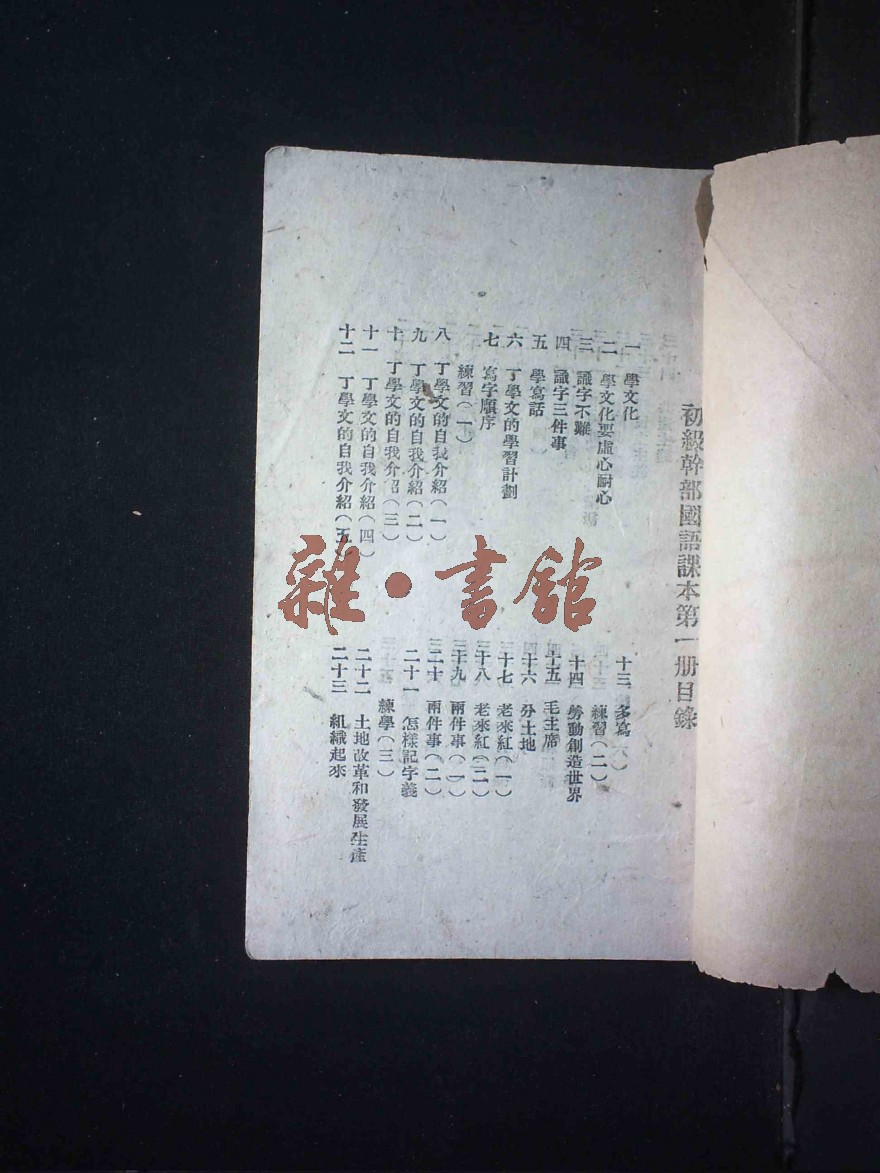 初級幹部國語課本第一册目錄
一 學文化
二 學文化要虛心耐心
三 識字不難
四 識字三件事
五 學寫話
六 丁學文的學習計劃
七 寫字順序
練習(一)
八 丁學文的自我介紹(一)
九 丁學文的自我介紹(二)
十 丁學文的自我介紹(三)
十一 丁學文的自我介紹(四)
十二 丁學文的自我介紹(五)
十三 多寫
練習(二)
十四 勞動創造世界
十五 毛主席
十六 分土地
十七 老來紅(一)
十八 老來紅(二)
十九 兩件事(一)
二十 兩件事(二)
二十一 怎樣記字義
練學(三)
二十二 土地改革和發展生產
二十三 組織起來
雜·書館